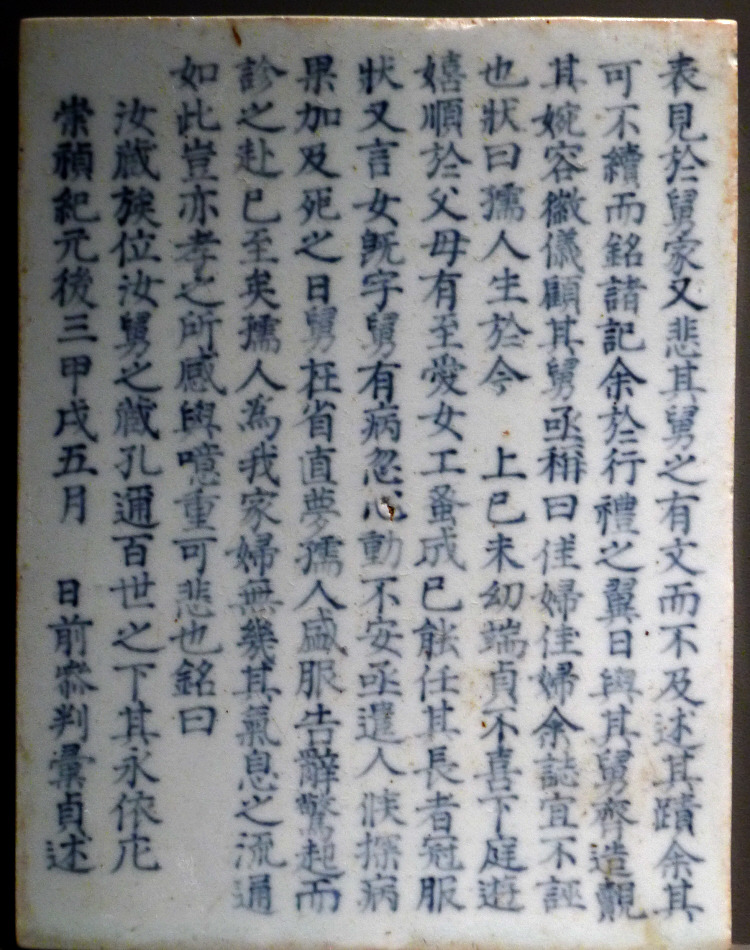 表見於舅家又悲其舅之有文而不及述其蹟余其
可不續而銘諸記余於行禮之翼日與其舅齊造觀
其婉容徽儀顧其舅亟稱曰佳婦佳婦余誌宜不誣
也狀曰孺人生於今 上己未幼端貞不喜下庭遊
嬉順於父母有至愛女工蚤成已能任其長者冠服
狀又言女旣字舅有病忽心動不安亟遣人候探病
果加及死之日舅在省直夢孺人盛服告辭驚起而
診之赴已至矣孺人為我家婦無幾其氣息之流通
如此豈亦孝之所感與噫重可悲也銘曰
汝藏族位汝舅之藏孔邇百世之下其永依庇
崇禎紀元後三甲戌五月 日前叅判彙貞述